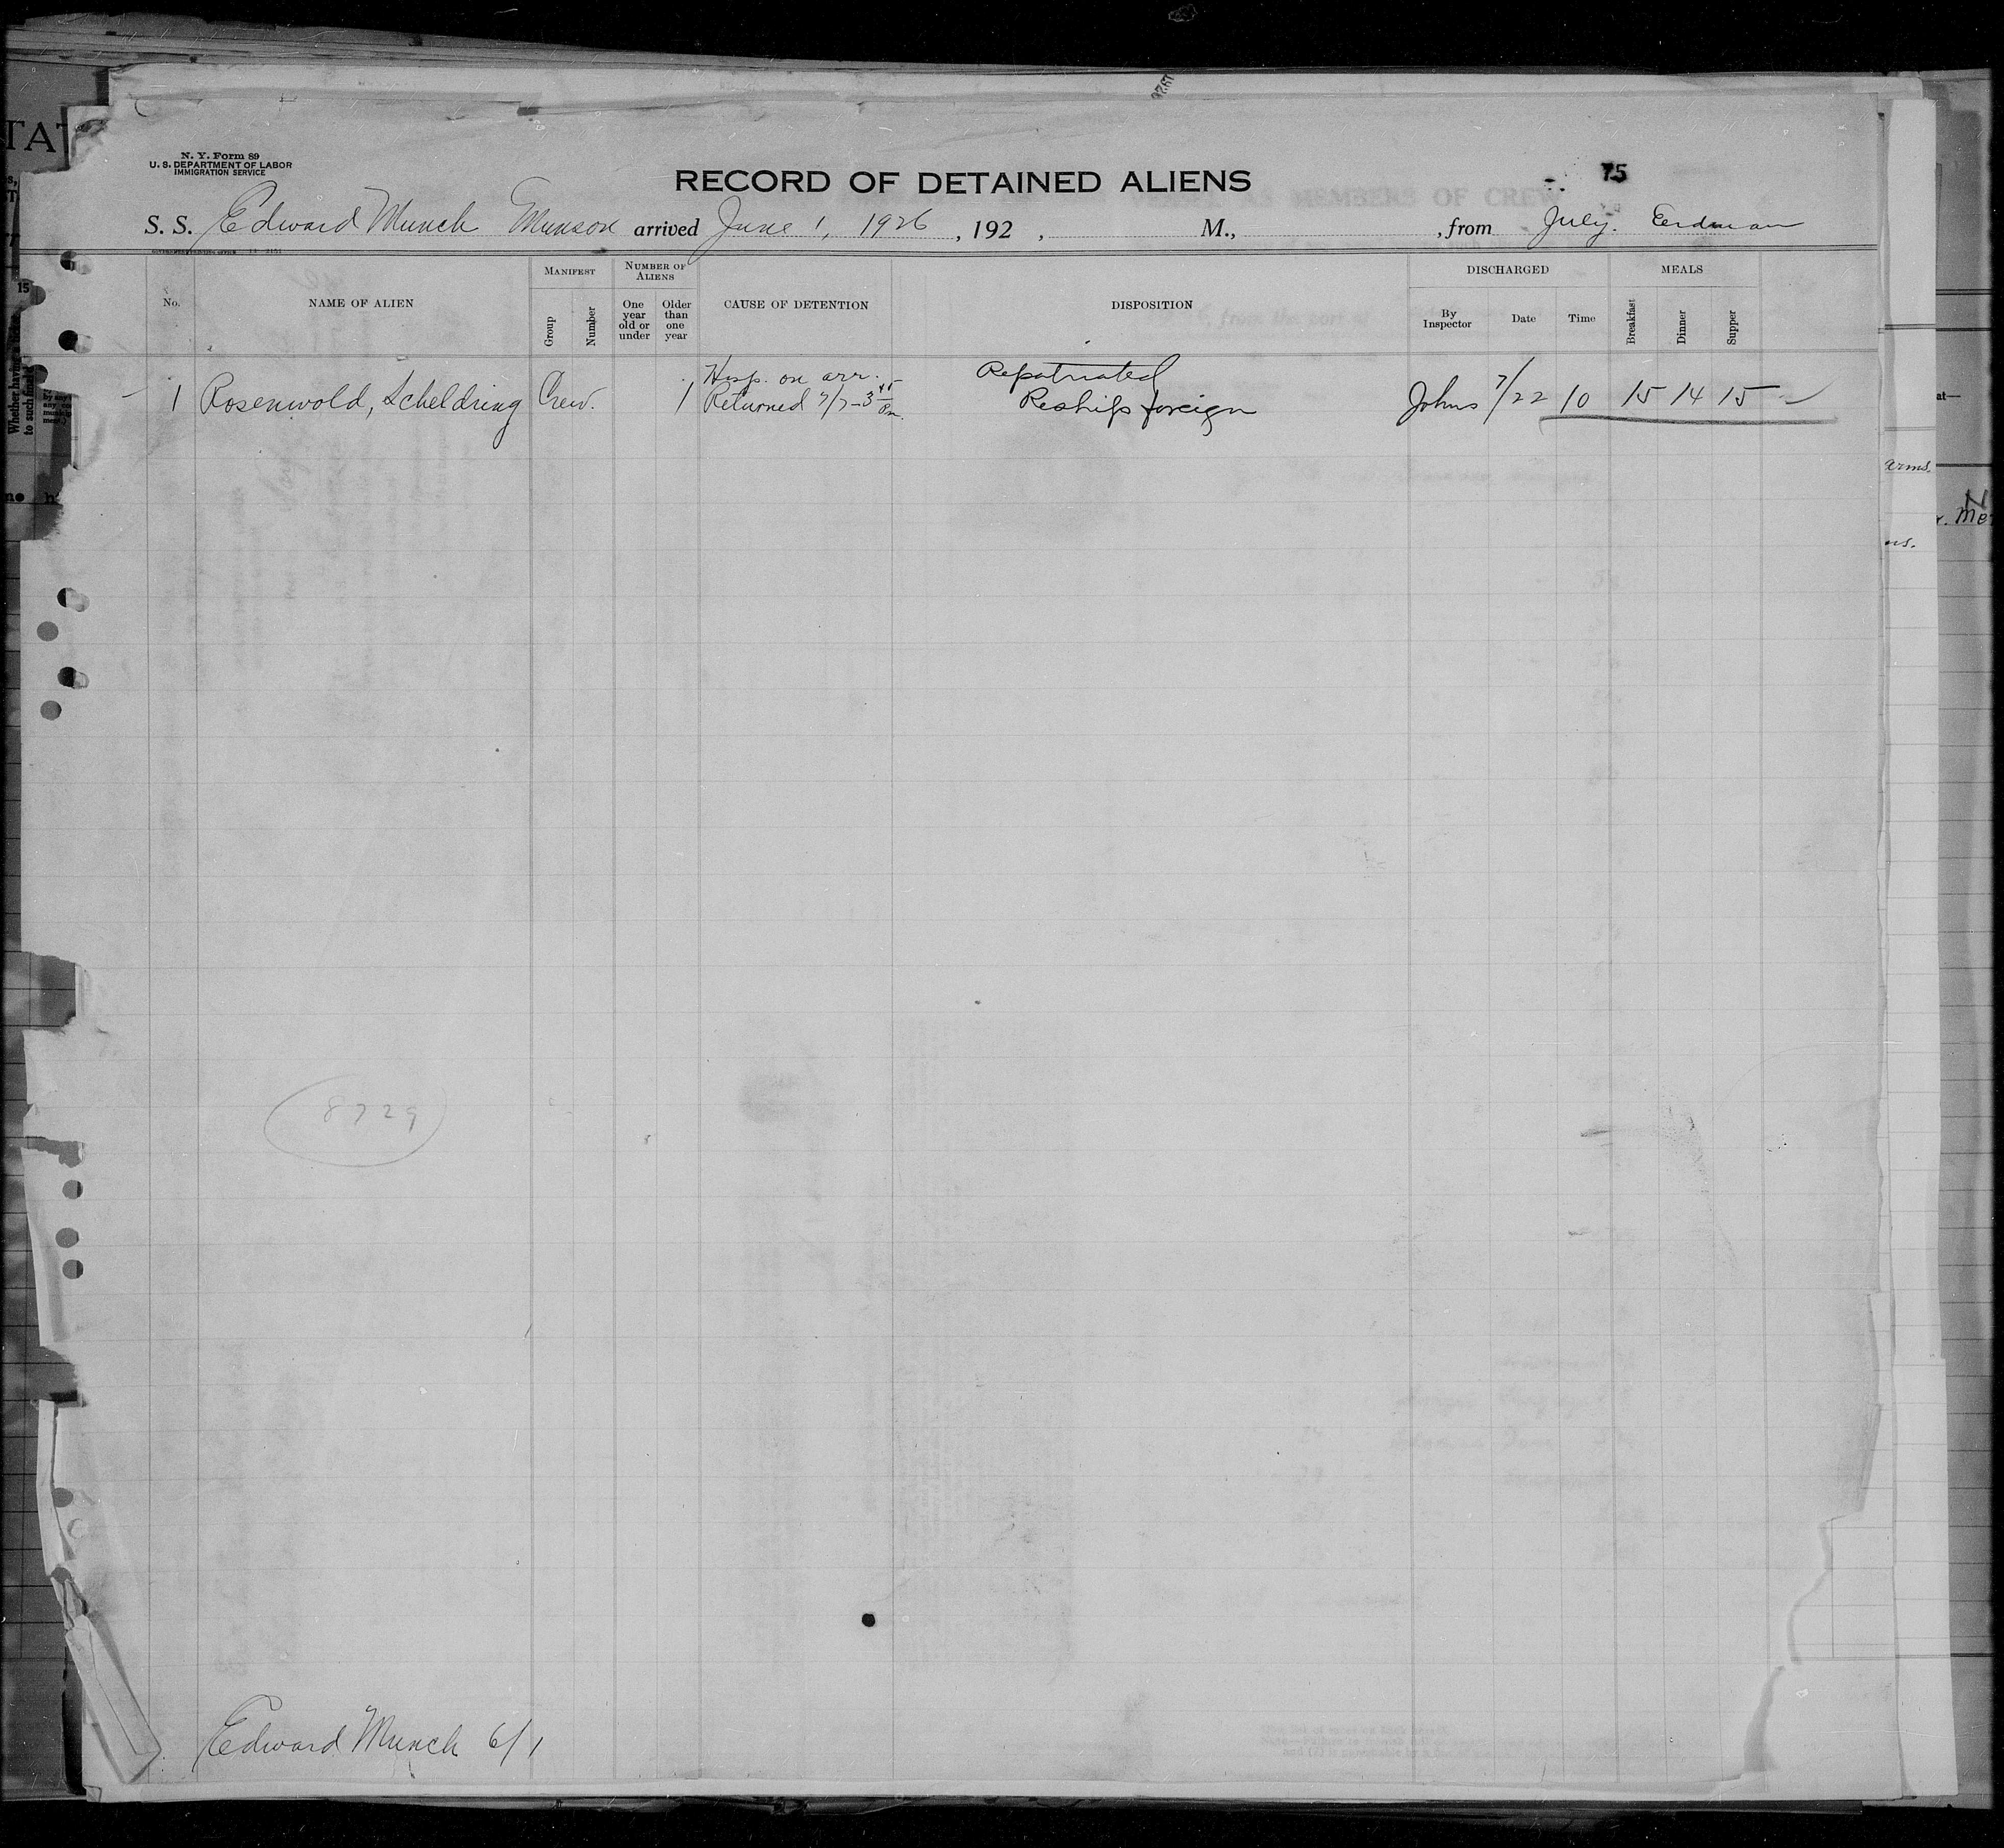 N. Y. Form 89
U. S. DEPARTMENT OF LABOR
IMMIGRATION SERVICE
RECORD OF DETAINED ALIENS
75
S. S. Edward Munch Munson arrived June 1, 1926, 192 , M., , from July. Erdman
No.
NAME OF ALIEN
MANIFEST
Group
Number
NUMBER OF ALIENS
One year old or under
Older than one year
CAUSE OF DETENTION
DISPOSITION
DISCHARGED
By Inspector
Date
Time
MEALS
Breakfast
Dinner
Supper
Hosp. on arr. Repatriated
1 Rosenwold, Scheldring Crew. 1 Returned 7/7-3 45 Pm. Reships foreign Johns 7/22 10 15 14 15
8729
Edward Munch 6/1